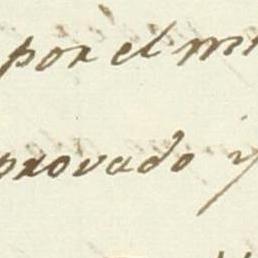 por el mi
provado y